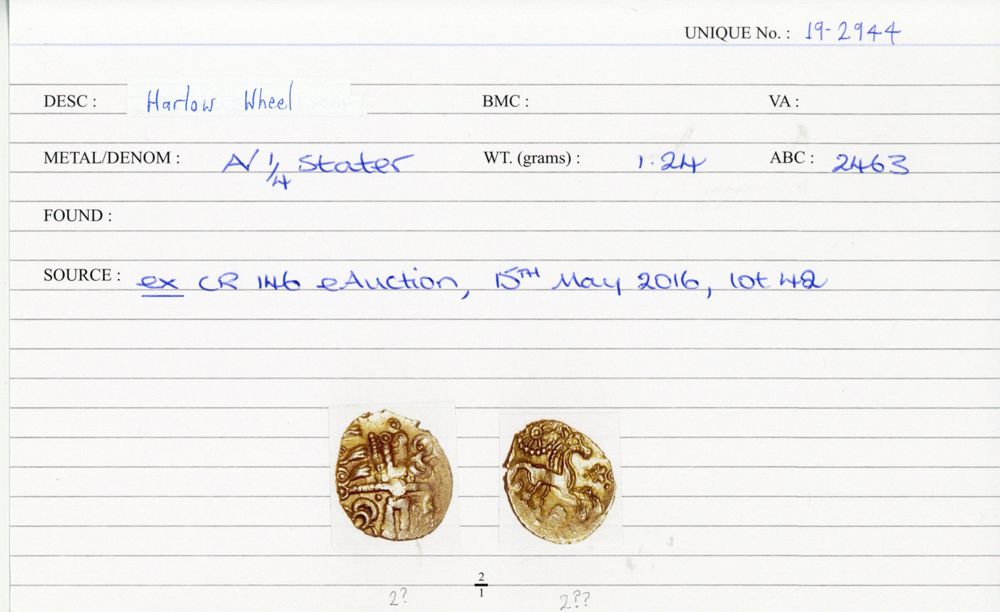 UNIQUE No. : 19-2944
DESC : Harlow Wheel BMC : VA :
METAL/DENOM : A/ 1/4 Stater WT. (grams) : 1.24 ABC : 2463
FOUND :
SOURCE : ex CR 146 eAuction, 15TH May 2016, lot 42
2
1
2? 2??